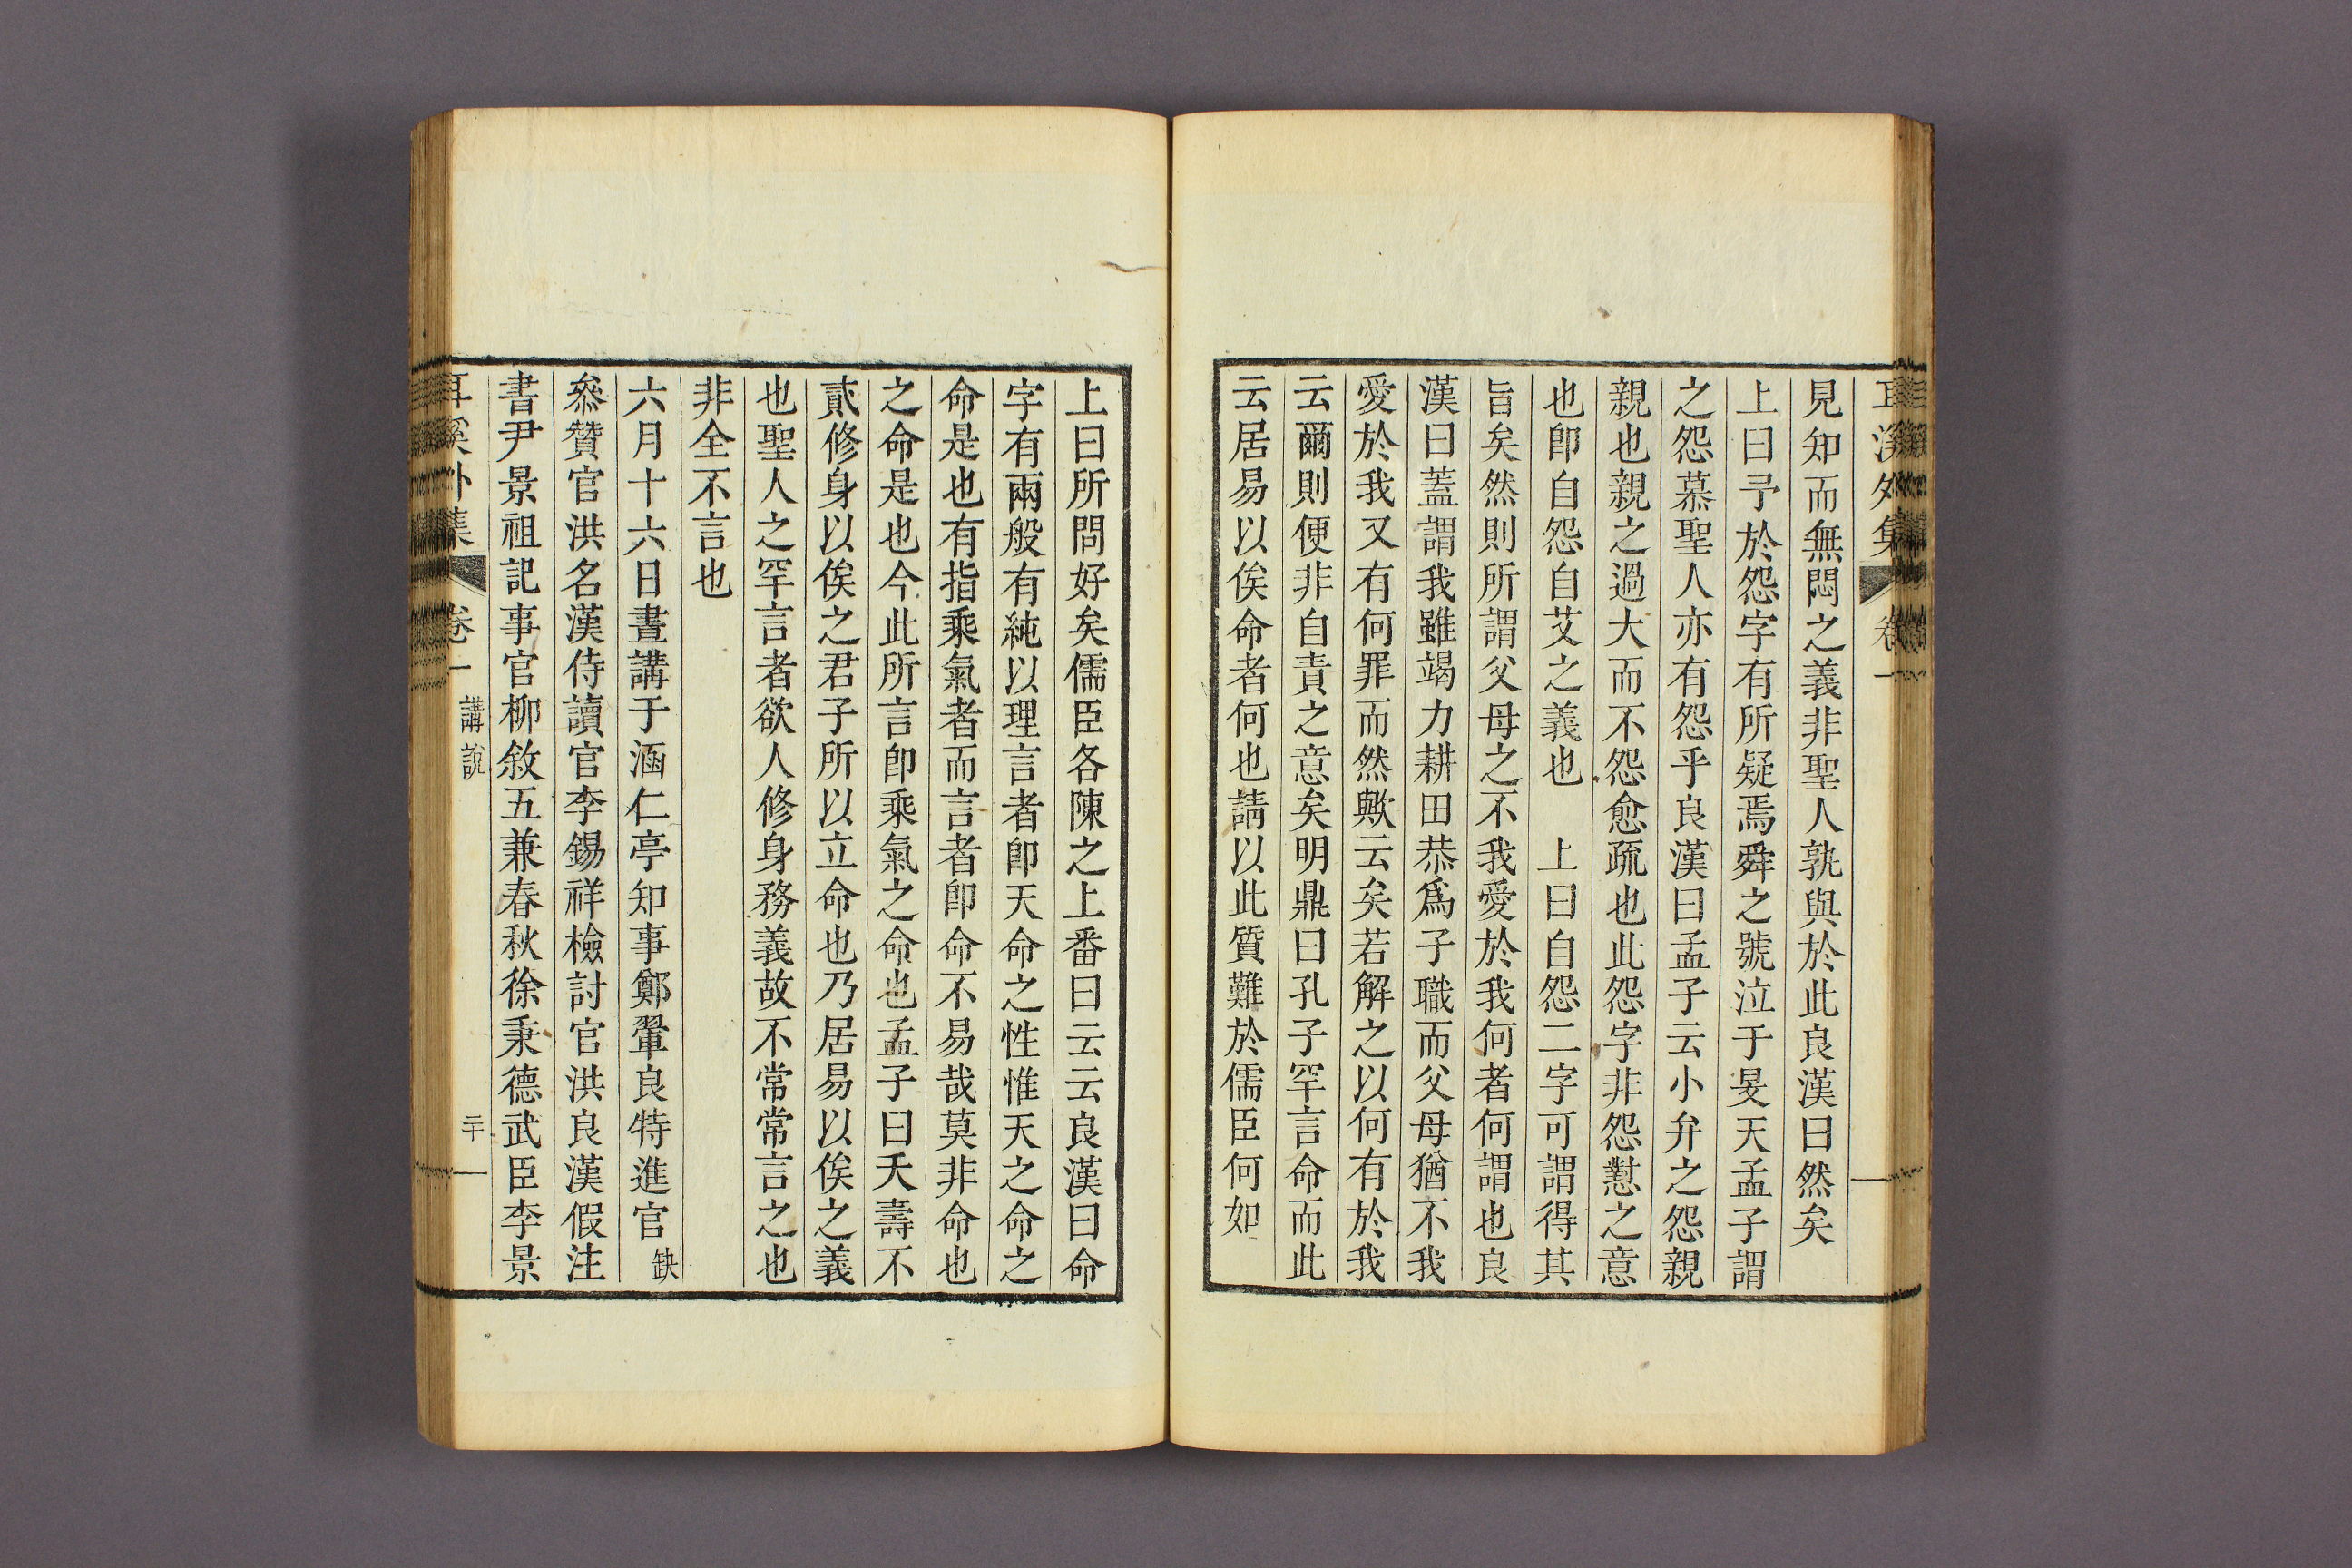 耳溪外集 卷一
見知而無悶之義非聖人孰與於此良漢曰然矣
上曰予於怨字有所疑焉舜之號泣于旻天孟子謂
之怨慕聖人亦有怨乎良漢曰孟子云小弁之怨親
親也親之過大而不怨愈疏也此怨字非怨懟之意
也卽自怨自艾之義也 上曰自怨二字可謂得其
旨矣然則所謂父母之不我愛於我何者何謂也良
漢曰蓋謂我雖竭力耕田恭爲子職而父母猶不我
愛於我又有何罪而然歟云矣若解之以何有於我
云爾則便非自責之意矣明鼎曰孔子罕言命而此
云居易以俟命者何也請以此質難於儒臣何如
上曰所問好矣儒臣各陳之上番曰云云良漢曰命
字有兩般有純以理言者卽天命之性惟天之命之
命是也有指乘氣者而言者卽命不易哉莫非命也
之命是也今此所言卽乘氣之命也孟子曰夭壽不
貳修身以俟之君子所以立命也乃居易以俟之義
也聖人之罕言者欲人修身務義故不常常言之也
非全不言也
六月十六日晝講于涵仁亭知事鄭翬良特進官缺
叅贊官洪名漢侍讀官李錫祥檢討官洪良漢假注
書尹景祖記事官柳敘五兼春秋徐秉德武臣李景
耳溪外集 卷一 講說 二十